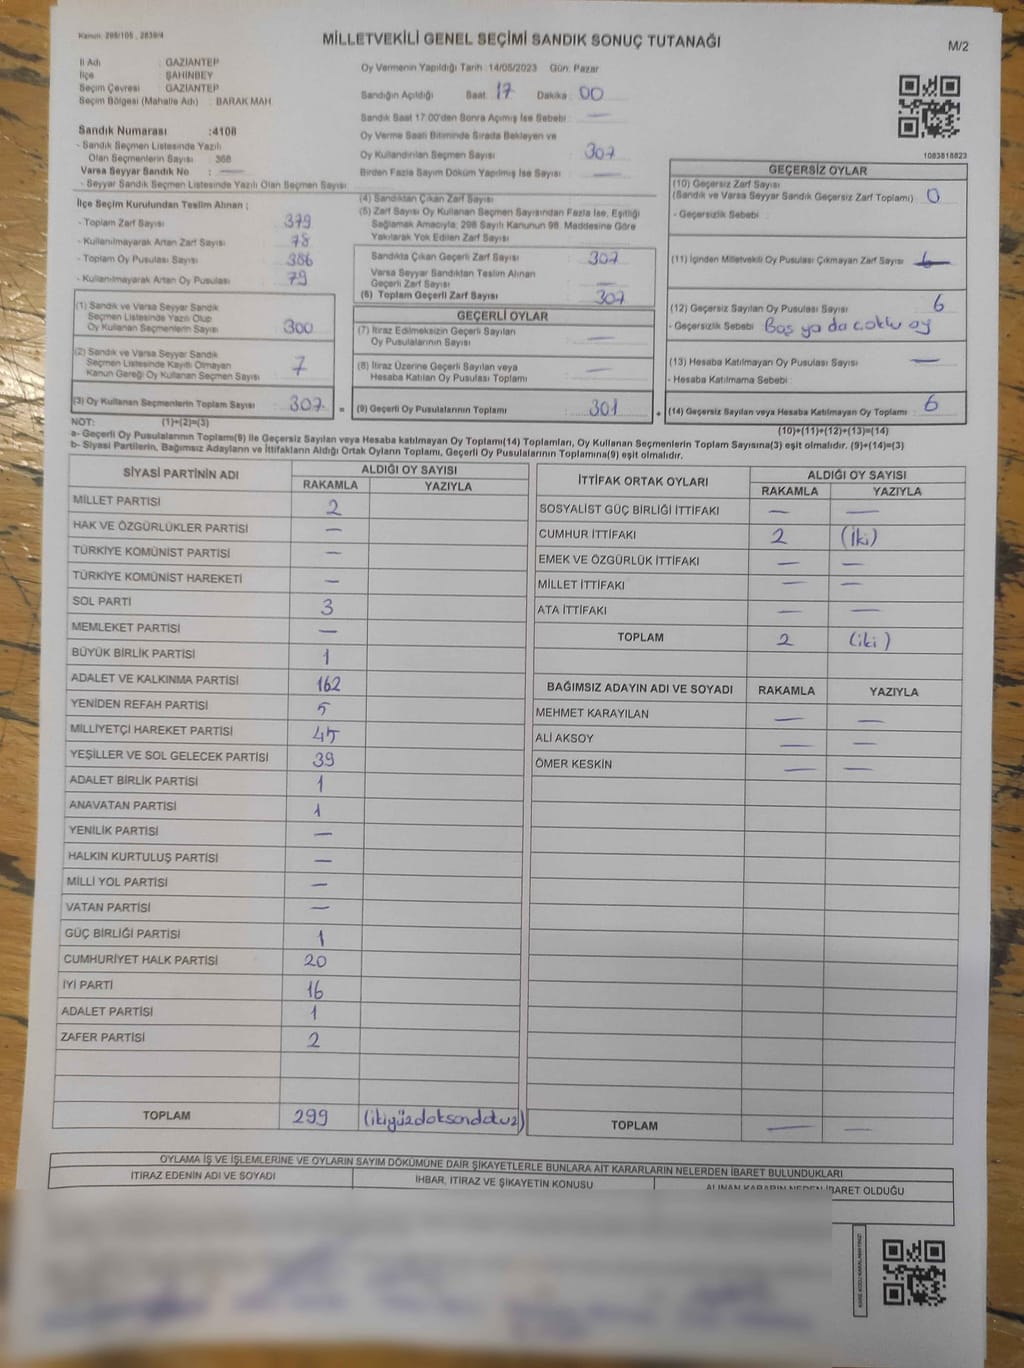 Kanun: 298/105 , 2839/4
MİLLETVEKİLİ GENEL SEÇİMİ SANDIK SONUÇ TUTANAĞI
M/2
İl Adı : GAZİANTEP
İlçe : ŞAHİNBEY
Seçim Çevresi : GAZİANTEP
Seçim Bölgesi (Mahalle Adı) : BARAK MAH.
Sandık Numarası :4108
- Sandık Seçmen Listesinde Yazılı
Olan Seçmenlerin Sayısı : 368
Varsa Seyyar Sandık No : —
- Seyyar Sandık Seçmen Listesinde Yazılı Olan Seçmen Sayısı
Oy Vermenin Yapıldığı Tarih :14/05/2023 Gün: Pazar
Sandığın Açıldığı Saat: 17 Dakika: 00
Sandık Saat 17:00'den Sonra Açılmış İse Sebebi: —
Oy Verme Saati Bitiminde Sırada Bekleyen ve
Oy Kullandırılan Seçmen Sayısı 307
Birden Fazla Sayım Döküm Yapılmış İse Sayısı —
1083818823
İlçe Seçim Kurulundan Teslim Alınan ;
- Toplam Zarf Sayısı 379
- Kullanılmayarak Artan Zarf Sayısı 78
- Toplam Oy Pusulası Sayısı 386
- Kullanılmayarak Artan Oy Pusulası 79
(1) Sandık ve Varsa Seyyar Sandık
Seçmen Listesinde Yazılı Olup
Oy Kullanan Seçmenlerin Sayısı 300
(2) Sandık ve Varsa Seyyar Sandık
Seçmen Listesinde Kayıtlı Olmayan
Kanun Gereği Oy Kullanan Seçmen Sayısı 7
(3) Oy Kullanan Seçmenlerin Toplam Sayısı 307
(4) Sandıktan Çıkan Zarf Sayısı
(5) Zarf Sayısı Oy Kullanan Seçmen Sayısından Fazla İse, Eşitliği
Sağlamak Amacıyla; 298 Sayılı Kanunun 98. Maddesine Göre
Yakılarak Yok Edilen Zarf Sayısı
Sandıkta Çıkan Geçerli Zarf Sayısı 307
Varsa Seyyar Sandıktan Teslim Alınan
Geçerli Zarf Sayısı —
(6) Toplam Geçerli Zarf Sayısı 307
GEÇERLİ OYLAR
(7) İtiraz Edilmeksizin Geçerli Sayılan
Oy Pusulalarının Sayısı —
(8) İtiraz Üzerine Geçerli Sayılan veya
Hesaba Katılan Oy Pusulası Toplamı —
= (9) Geçerli Oy Pusulalarının Toplamı : 301 +
GEÇERSİZ OYLAR
(10) Geçersiz Zarf Sayısı
(Sandık ve Varsa Seyyar Sandık Geçersiz Zarf Toplamı) 0
- Geçersizlik Sebebi
(11) İçinden Milletvekili Oy Pusulası Çıkmayan Zarf Sayısı 6
(12) Geçersiz Sayılan Oy Pusulası Sayısı 6
- Geçersizlik Sebebi Boş ya da çoklu oy
(13) Hesaba Katılmayan Oy Pusulası Sayısı —
- Hesaba Katılmama Sebebi
(14) Geçersiz Sayılan veya Hesaba Katılmayan Oy Toplamı : 6
(10)+(11)+(12)+(13)=(14)
NOT: (1)+(2)=(3)
a- Geçerli Oy Pusulalarının Toplamı(9) ile Geçersiz Sayılan veya Hesaba katılmayan Oy Toplamı(14) Toplamları, Oy Kullanan Seçmenlerin Toplam Sayısına(3) eşit olmalıdır. (9)+(14)=(3)
b- Siyasi Partilerin, Bağımsız Adayların ve İttifakların Aldığı Ortak Oyların Toplamı, Geçerli Oy Pusulalarının Toplamına(9) eşit olmalıdır.
SİYASİ PARTİNİN ADI ALDIĞI OY SAYISI
RAKAMLA YAZIYLA
MİLLET PARTİSİ 2
HAK VE ÖZGÜRLÜKLER PARTİSİ —
TÜRKİYE KOMÜNİST PARTİSİ —
TÜRKİYE KOMÜNİST HAREKETİ —
SOL PARTİ 3
MEMLEKET PARTİSİ —
BÜYÜK BİRLİK PARTİSİ 1
ADALET VE KALKINMA PARTİSİ 162
YENİDEN REFAH PARTİSİ 5
MİLLİYETÇİ HAREKET PARTİSİ 45
YEŞİLLER VE SOL GELECEK PARTİSİ 39
ADALET BİRLİK PARTİSİ 1
ANAVATAN PARTİSİ 1
YENİLİK PARTİSİ —
HALKIN KURTULUŞ PARTİSİ —
MİLLİ YOL PARTİSİ —
VATAN PARTİSİ —
GÜÇ BİRLİĞİ PARTİSİ 1
CUMHURİYET HALK PARTİSİ 20
İYİ PARTİ 16
ADALET PARTİSİ 1
ZAFER PARTİSİ 2
TOPLAM 299 (ikiyüzdoksandokuz)
İTTİFAK ORTAK OYLARI ALDIĞI OY SAYISI
RAKAMLA YAZIYLA
SOSYALİST GÜÇ BİRLİĞİ İTTİFAKI — —
CUMHUR İTTİFAKI 2 (İki)
EMEK VE ÖZGÜRLÜK İTTİFAKI — —
MİLLET İTTİFAKI — —
ATA İTTİFAKI — —
TOPLAM 2 (iki)
BAĞIMSIZ ADAYIN ADI VE SOYADI RAKAMLA YAZIYLA
MEHMET KARAYILAN — —
ALİ AKSOY — —
ÖMER KESKİN — —
TOPLAM — —
OYLAMA İŞ VE İŞLEMLERİNE VE OYLARIN SAYIM DÖKÜMÜNE DAİR ŞİKAYETLERLE BUNLARA AİT KARARLARIN NELERDEN İBARET BULUNDUKLARI
İTİRAZ EDENİN ADI VE SOYADI İHBAR, İTİRAZ VE ŞİKAYETİN KONUSU ALINAN KARARIN NEDEN İBARET OLDUĞU